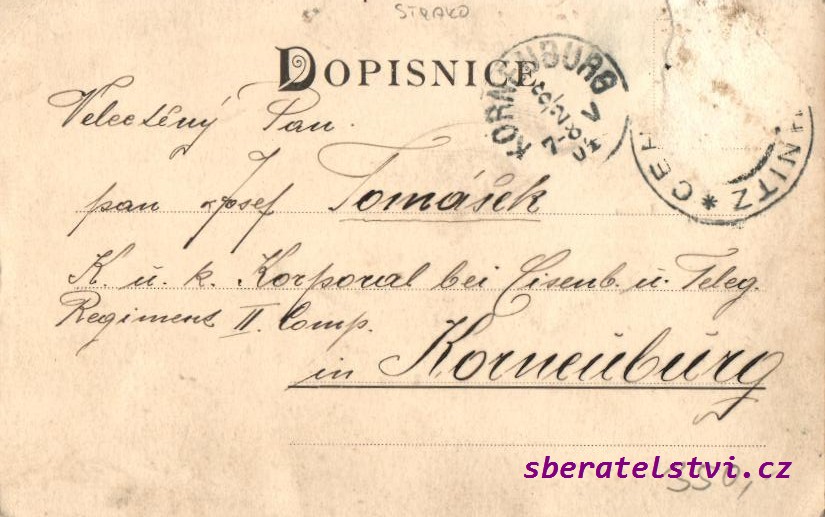 STRAKO
DOPISNICE
KORNEUBURG
Velectěný Pan.
pan Josef Tomášek
K. u. k. Korporal bei Eisenb. u. Teleg.
Regiment II. Comp.
in Korneuburg
sberatelstvi.cz
350,